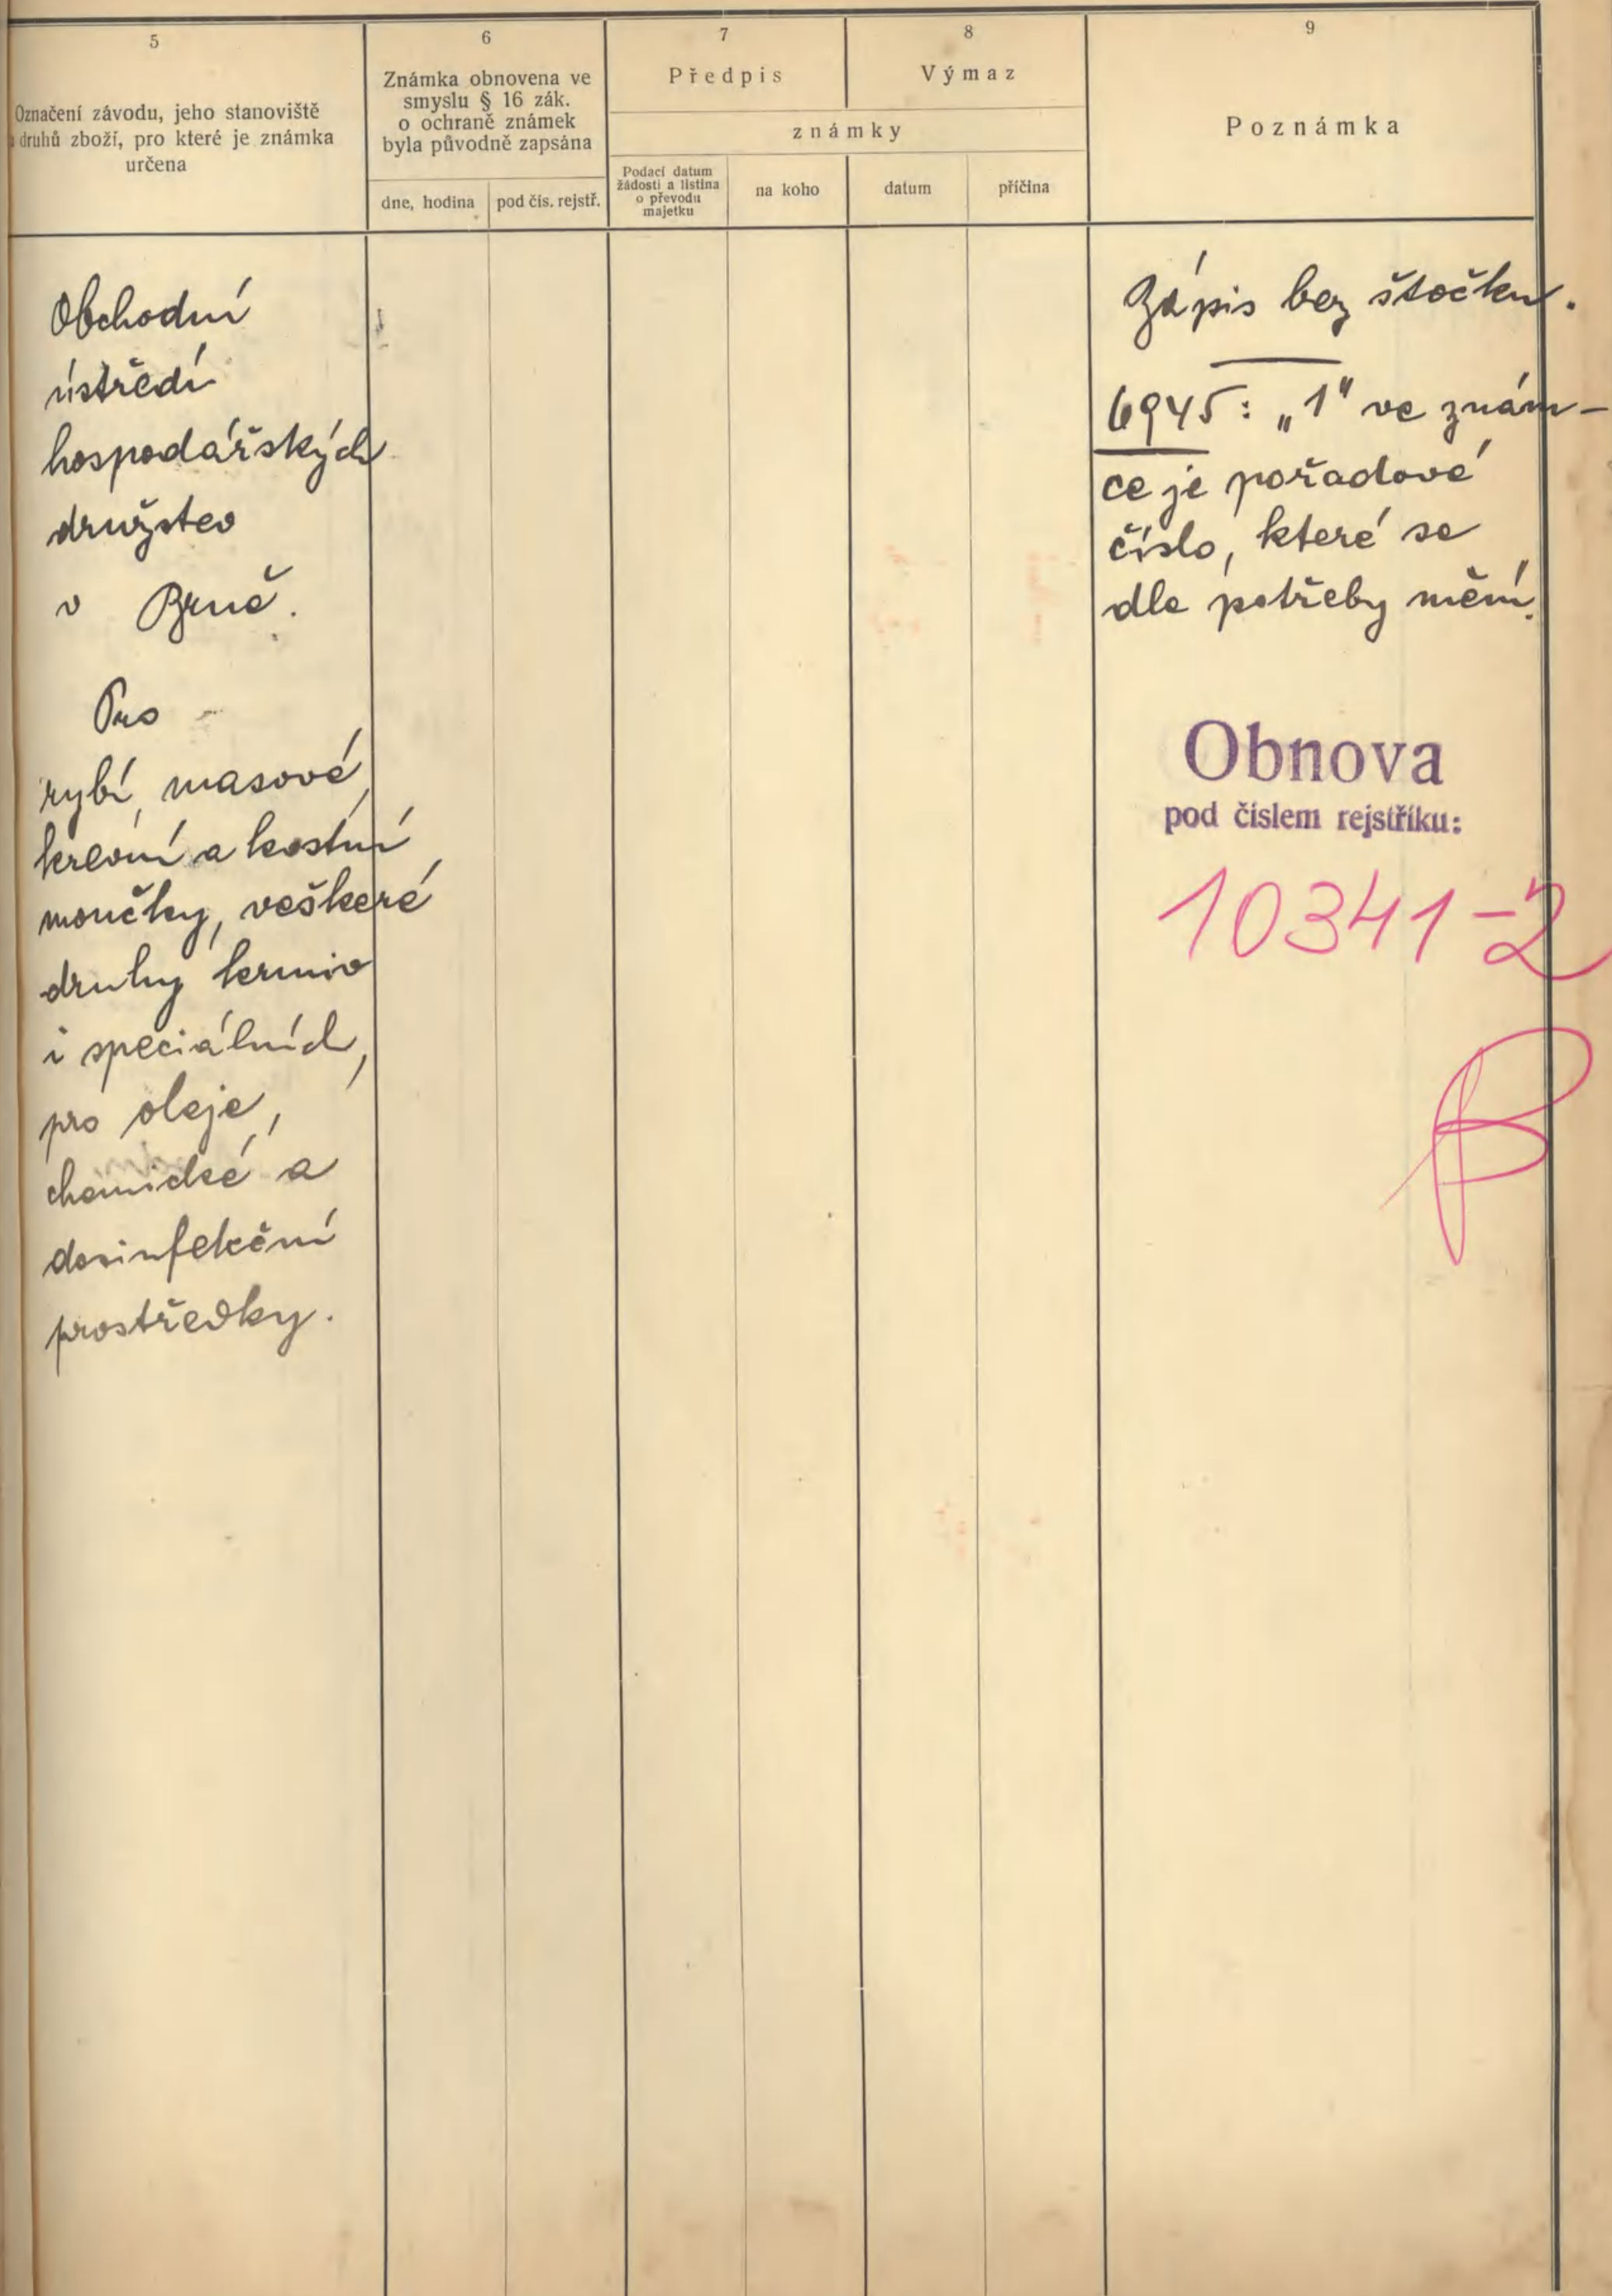 5
Označení závodu, jeho stanoviště
a druhů zboží, pro které je známka
určena
6
Známka obnovena ve
smyslu § 16 zák.
o ochraně známek
byla původně zapsána
dne, hodina
pod čís. rejstř.
7
Předpis
8
Výmaz
známky
Podací datum
žádosti a listina
o převodu
majetku
na koho
datum
příčina
9
Poznámka
Obchodní
ústředí
hospodářských
družstev
v Brně.
Pro
rybí, masové,
krevní a kostní
moučky, veškeré
druhy krmiv
i speciálních,
pro oleje,
chemické a
desinfekční
prostředky.
Zápis bez štočku.
6945: „1" ve znám-
ce je pořadové
číslo, které se
dle potřeby mění.
Obnova
pod číslem rejstříku:
10341-2